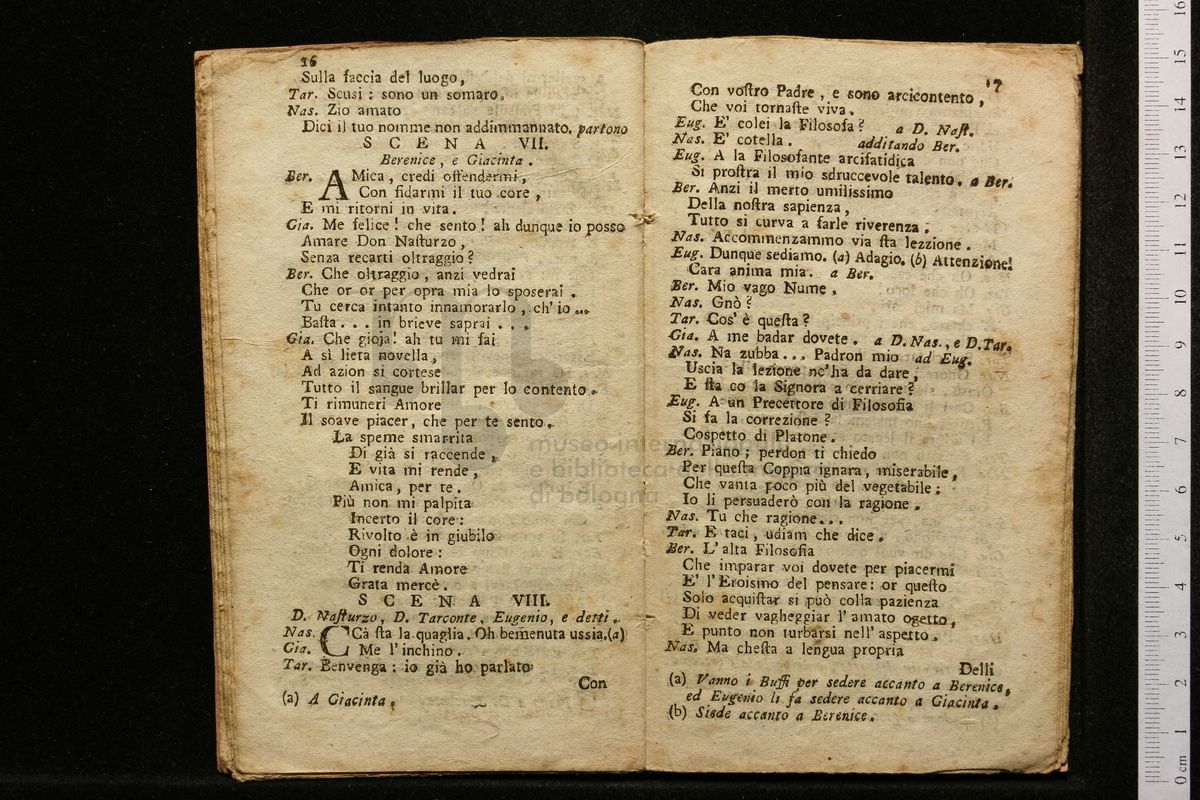 16
Sulla faccia del luogo,
Tar. Scusi: sono un somaro.
Nas. Zio amato
Dici il tuo nomme non addimmannato. partono
SCENA VII.
Berenice, e Giacinta.
Ber. AMica, credi offendermi,
Con fidarmi il tuo core,
E mi ritorni in vita.
Gia. Me felice! che sento! ah dunque io posso
Amare Don Naſturzo,
Senza recarti oltraggio?
Ber. Che oltraggio, anzi vedrai
Che or or per opra mia lo sposerai.
Tu cerca intanto innamorarlo, ch'io...
Baſta... in brieve saprai...
Gia. Che gioja! ah tu mi fai
A sì lieta novella,
Ad azion si cortese
Tutto il sangue brillar per lo contento.
Ti rimuneri Amore
Il soave piacer, che per te sento.
La speme smarrita
Di già si raccende,
E vita mi rende,
Amica, per te.
Più non mi palpita
Incerto il core:
Rivolto è in giubilo
Ogni dolore:
Ti renda Amore
Grata mercè.
SCENA VIII.
D. Naſturzo, D. Tarconte, Eugenio, e detti.
Nas. CCà ſta la quaglia. Oh bemenuta ussia.(a)
Gia. Me l'inchino.
Tar. Benvenga: io già ho parlato
Con
(a) A Giacinta.
17
Con voſtro Padre, e sono arcicontento,
Che voi tornaſte viva.
Eug. E' colei la Filosofa? a D. Naſt.
Nas. E' cotella. additando Ber.
Eug. A la Filosofante arcifatidica
Si proſtra il mio sdruccevole talento. a Ber.
Ber. Anzi il merto umilissimo
Della noſtra sapienza,
Tutto si curva a farle riverenza.
Nas. Accommenzammo via ſta lezzione.
Eug. Dunque sediamo. (a) Adagio. (b) Attenzione!
Cara anima mia. a Ber.
Ber. Mio vago Nume.
Nas. Gnò?
Tar. Cos' è queſta?
Gia. A me badar dovete. a D. Nas., e D.Tar.
Nas. Na zubba... Padron mio ad Eug.
Uscia la lezione nc'ha da dare,
E ſta co la Signora a cerriare?
Eug. A un Precettore di Filosofia
Si fa la correzione?
Cospetto di Platone.
Ber. Piano; perdon ti chiedo
Per queſta Coppia ignara, miserabile,
Che vanta poco più del vegetabile;
Io li persuaderò con la ragione.
Nas. Tu che ragione...
Tar. E taci, udiam che dice.
Ber. L'alta Filosofia
Che imparar voi dovete per piacermi
E' l'Eroismo del pensare: or queſto
Solo acquiſtar si può colla pazienza
Di veder vagheggiar l'amato ogetto,
E punto non turbarsi nell'aspetto.
Nas. Ma cheſta a lengua propria
Delli
(a) Vanno i Buffi per sedere accanto a Berenice,
ed Eugenio li fa sedere accanto a Giacinta.
(b) Siede accanto a Berenice.
museo internazionale
e biblioteca
di bologna
0 cm 1 2 3 4 5 6 7 8 9 10 11 12 13 14 15 16